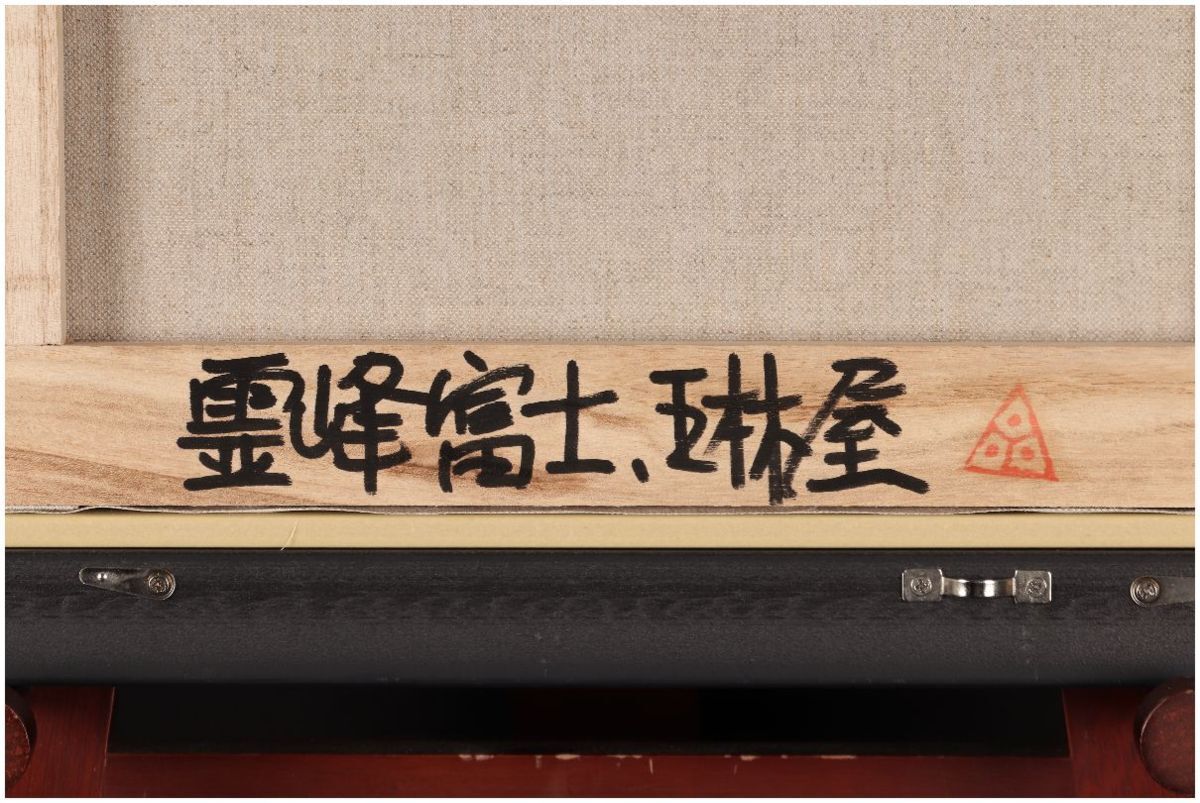 霊峰富士、琳屋